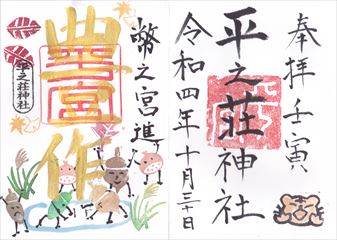 奉拝 壬寅
平之荘神社
令和四年十月三十日
幣之宮進
豊作
平之荘神社